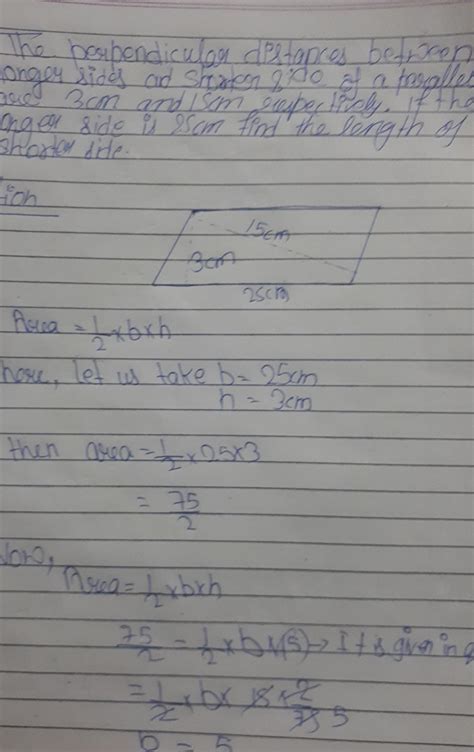 The perpendicular distances between
longer sides ad shorter side of a parallel
are 3cm and 15cm respectively. If the
longer side is 25cm find the length of
shorter side.
tion
15cm
3cm
25cm
Area = 1/2 × b × h
here, let us take b = 25cm
h = 3cm
then area = 1/2 × 25 × 3
= 75/2
Now,
Area = 1/2 × b × h
75/2 = 1/2 × b × 15 → It is given in q
= 1/2 × b × 15 × 2/75 5
b = 5